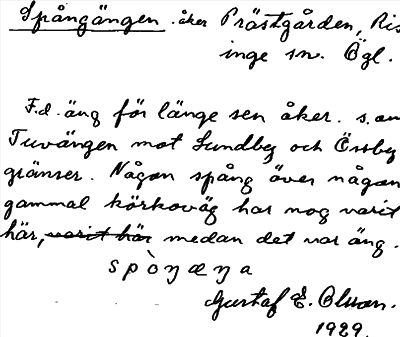 Spångängen. åker Prästgården, Ris
inge sn. Ögl.
F.d. äng för länge sen åker. s. om
Tuvängen mot Sundby och Össby
gränser. Någon spång över någon
gammal körkoväg har nog varit
här, varit här medan det var äng.
spòŋæŋa
Gustaf E. Olsson.
1929.